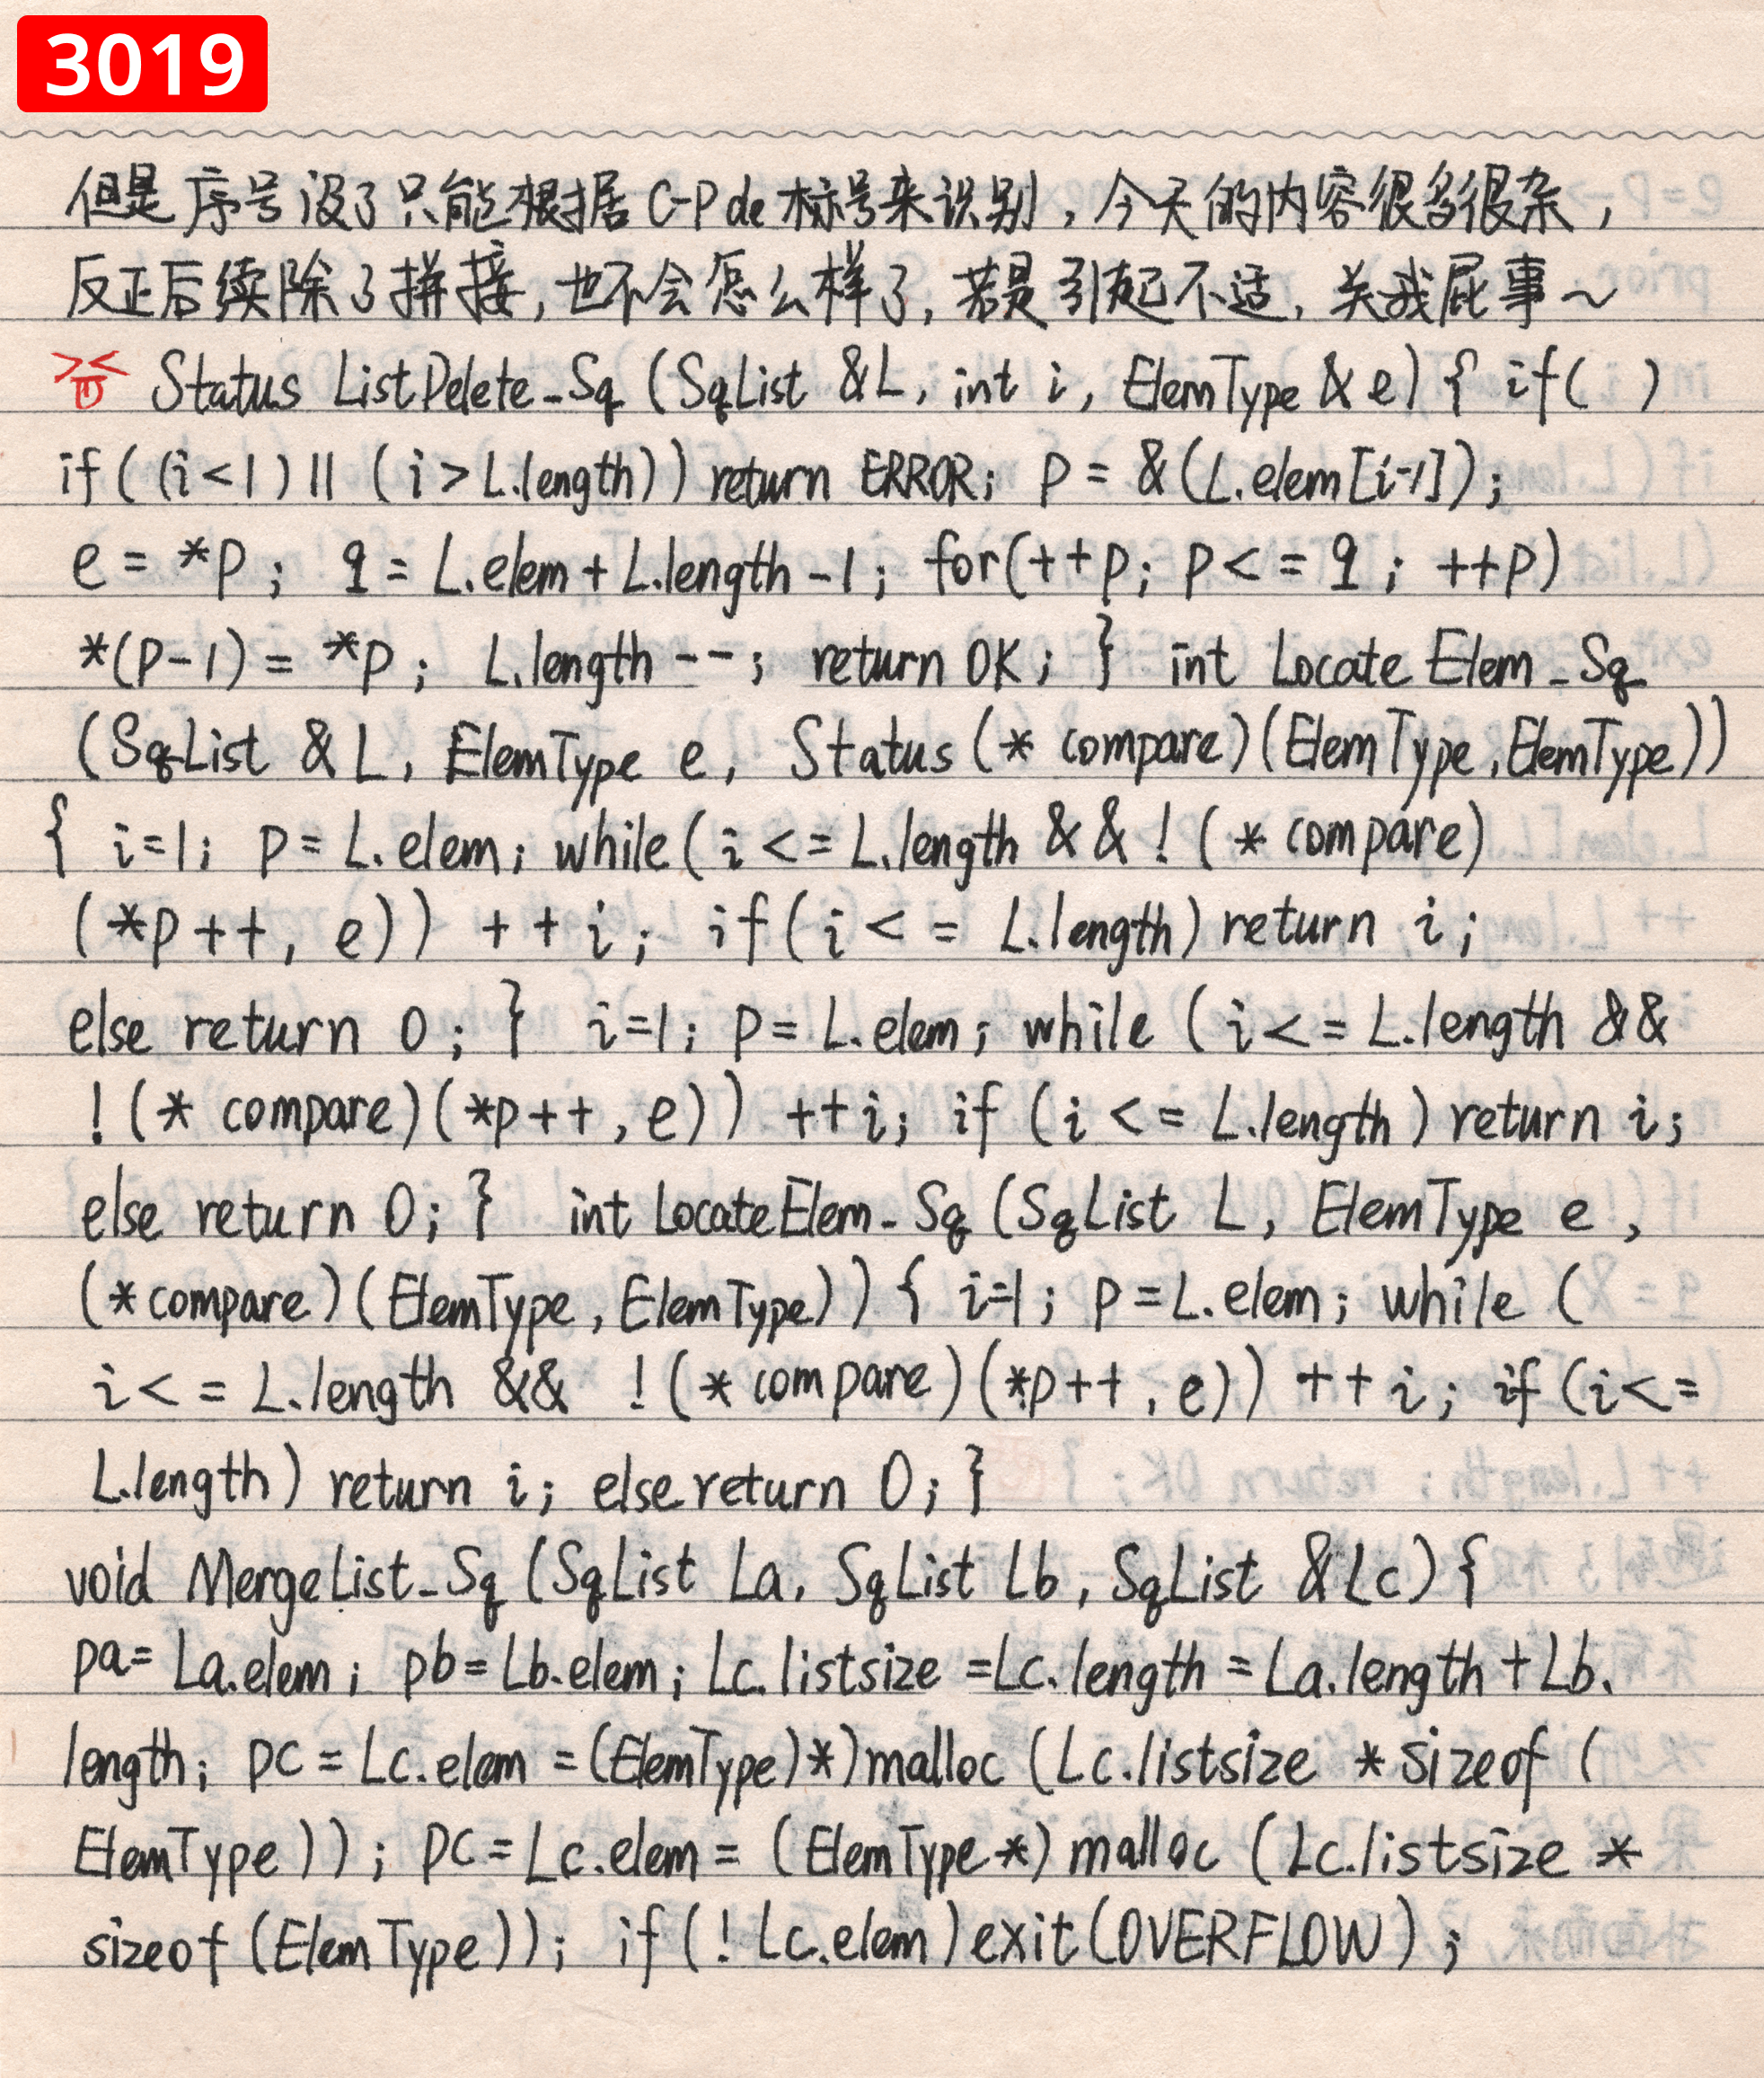 3019
但是序号没了只能根据C-Pde标号来识别，今天的内容很多很杂，
反正后续除了拼接，也不会怎么样了，若是引起不适，关我屁事～
Status ListDelete_Sq (SqList &L, int i, ElemType & e) { if( )
if ( (i<1) || (i > L.length)) return ERROR; p = & (L.elem[i-1]);
e = *p; q = L.elem + L.length -1; for(++p; p<=q; ++p)
*(p-1) = *p; L.length --; return OK; } int Locate Elem_Sq
(SqList & L, ElemType e, Status (* compare)(ElemType, ElemType))
{ i=1; p= L.elem; while ( i <= L.length && ! ( * compare)
(*p++, e)) ++i; if ( i <= L.length) return i;
else return 0; } i=1; p= L.elem; while ( i<= L.length &&
! (* compare) (*p++, e)) ++i; if (i <= L.length) return i;
else return 0; } int LocateElem_Sq (SqList L, ElemType e,
(*compare)(ElemType, ElemType)) { i=1; p=L.elem; while (
i<= L.length && ! (* compare) (*p++, e)) ++i; if (i<=
L.length) return i; else return 0; }
void MergeList_Sq (SqList La, SqList Lb, SqList &Lc) {
pa= La.elem; pb= Lb.elem; Lc.listsize =Lc.length = La.length + Lb.
length; pc = Lc.elem = (ElemType)*)malloc (Lc.listsize * sizeof (
ElemType)); pc = Lc.elem = (ElemType*) malloc (Lc.listsize *
sizeof (ElemType)); if (! Lc.elem) exit(OVERFLOW);